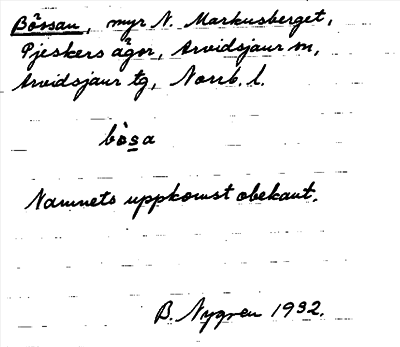 Bössan, myr N. Markusberget,
Pjeskers ägor, Arvidsjaur sn,
Arvidsjaur tg, Norrb. l.
bòsa
Namnets uppkomst obekant.
B. Nygren 1932.